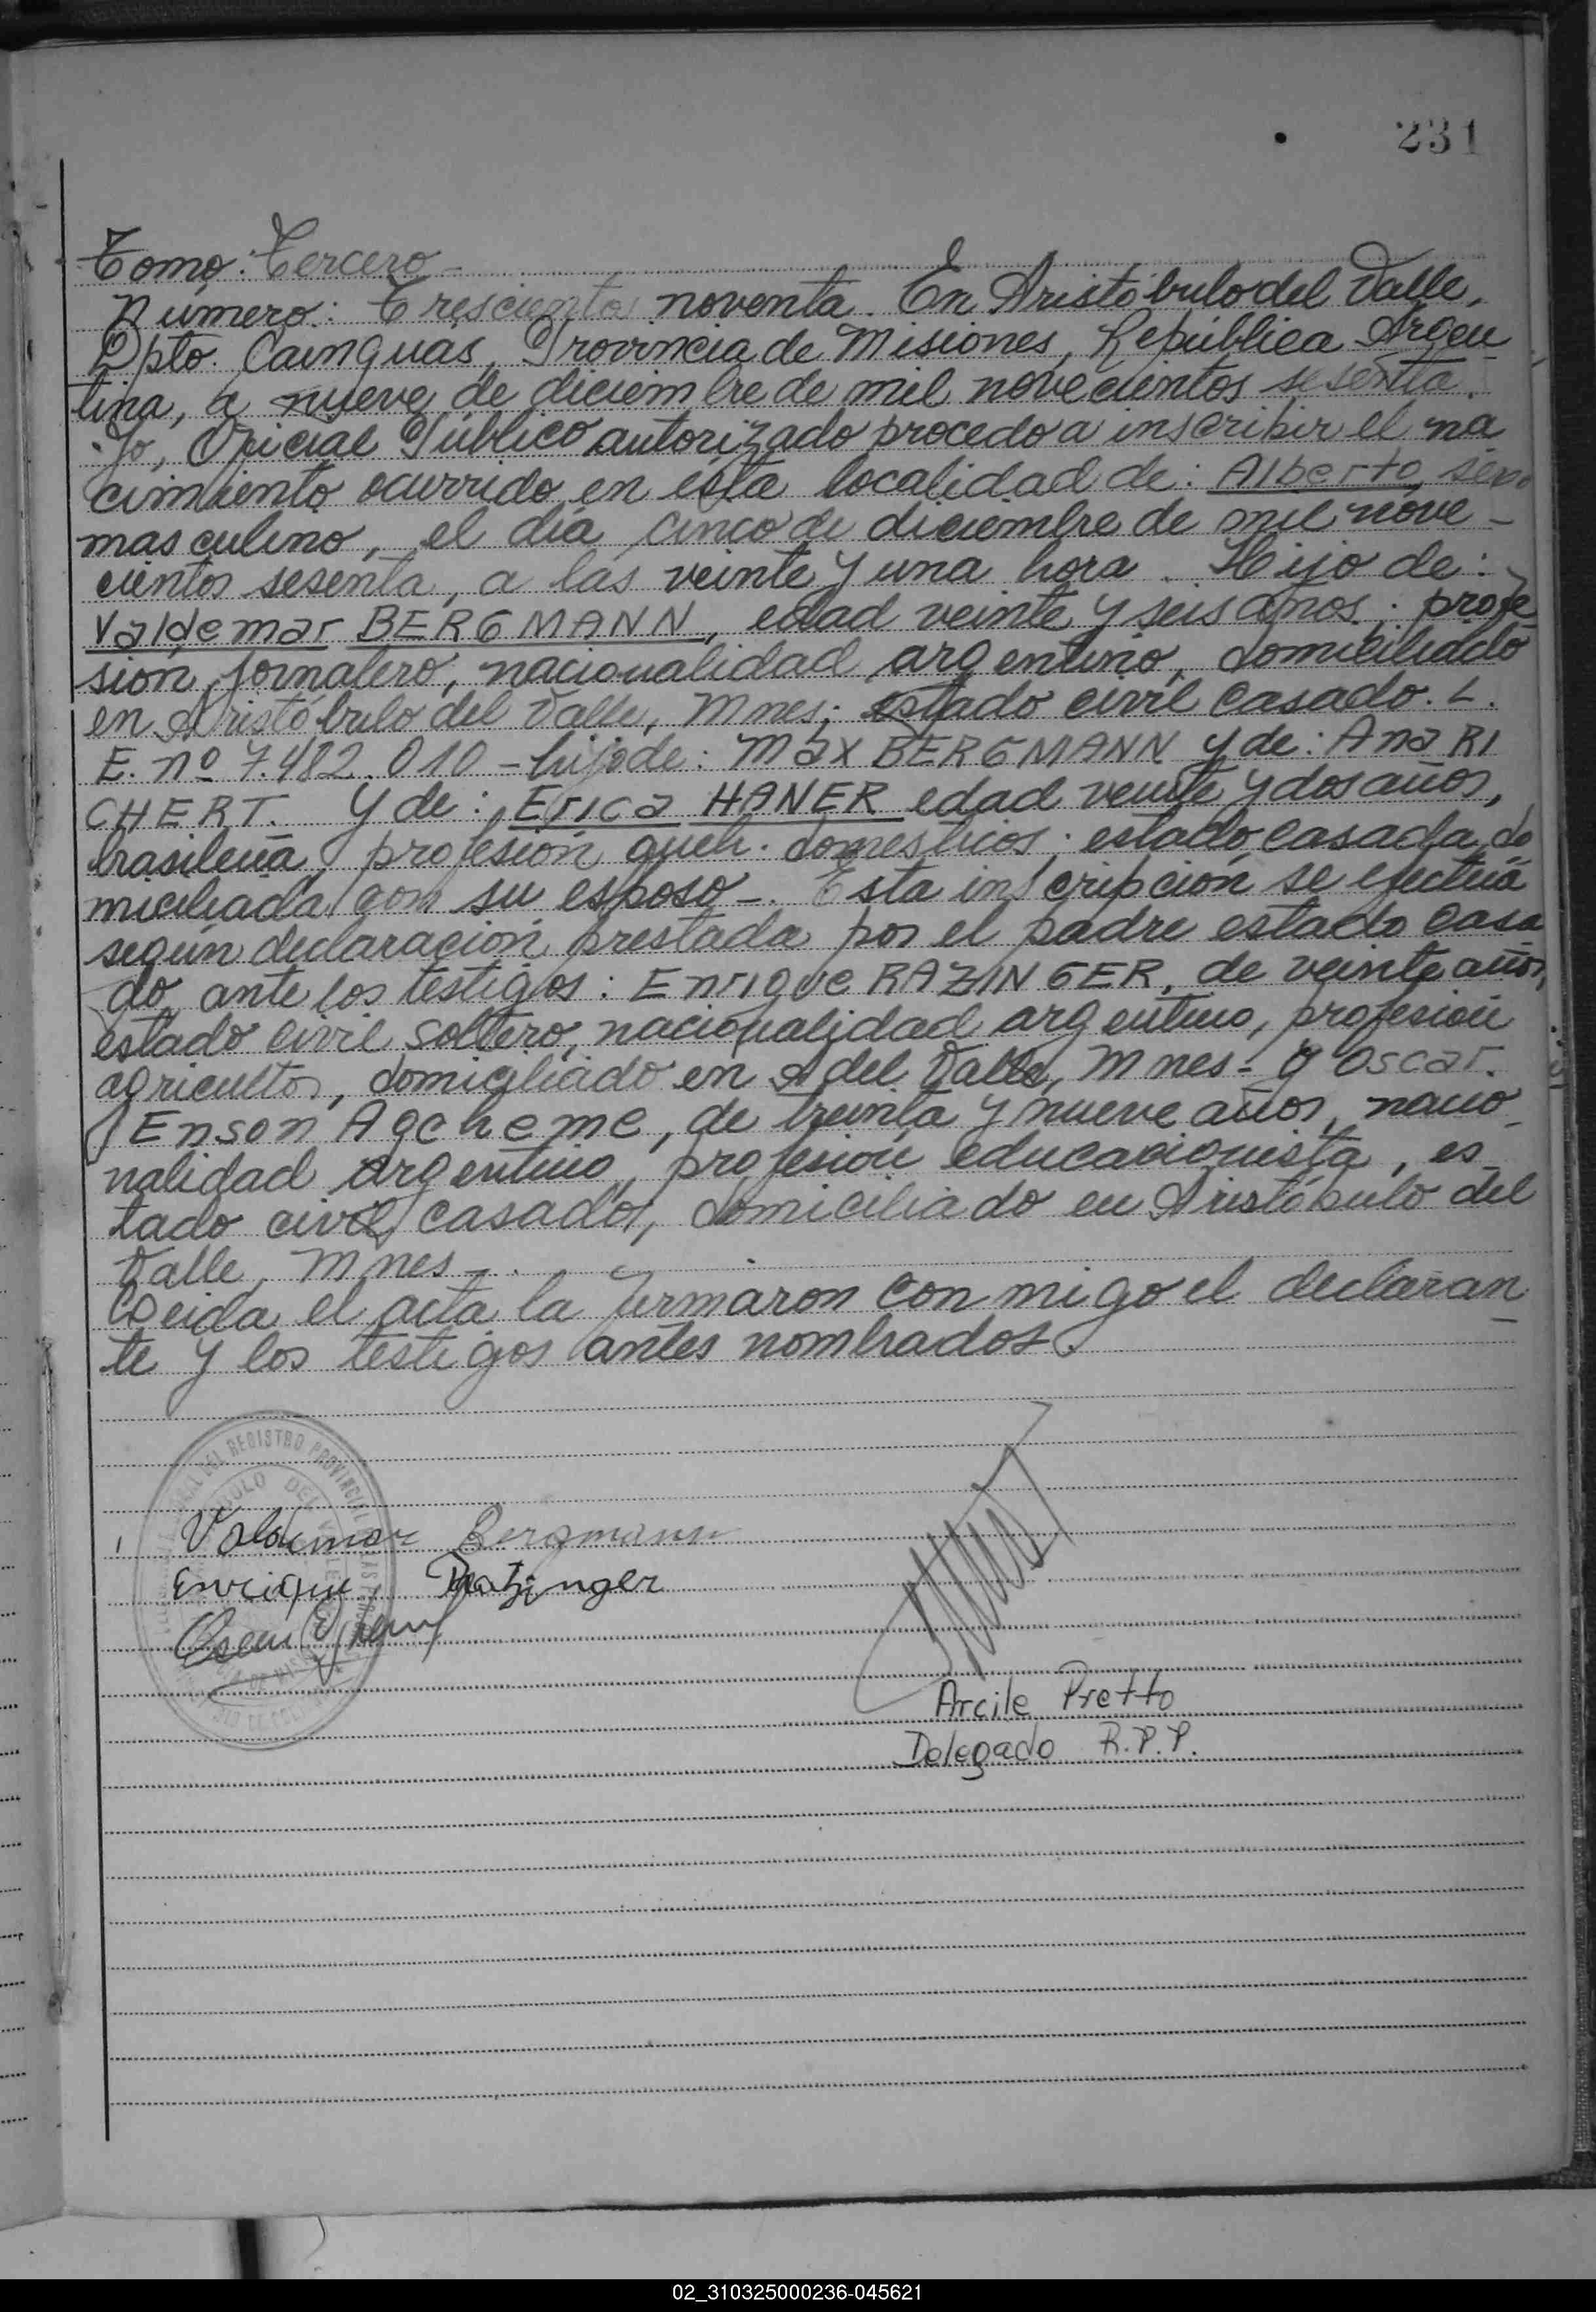 231
Tomo: Tercero-
Número: Trescientos noventa. En Aristóbulo del Valle,
Dpto. Cainguas, Provincia de Misiones, República Argen
tina, a nueve de diciembre de mil novecientos sesenta.
Yo, Oficial Público autorizado procedo a inscribir el na
cimiento ocurrido en ésta localidad de: Alberto, sexo
masculino, el día cinco de diciembre de mil nove-
cientos sesenta, a las veinte y una hora. Hijo de:
Valdemar BERGMANN, edad veinte y seis años. profe
sión jornalero, nacionalidad argentino, domiciliado
en Aristóbulo del Valle, Mnes; estado civil casado. L.
E. nº 7.482.010 - hijo de: Max BERGMANN y de: Ana RI
CHERT. Y de: Erica HANER edad veinte y dos años,
brasileña, profesión queh. domésticos; estado casada, do
miciliada con su esposo-. Esta inscripción se efectúa
según declaración prestada por el padre estado casa
do, ante los testigos: Enrique RAZINGER, de veinte años,
estado civil soltero, nacionalidad argentino, profesión
agricultor, domiciliado en A del Valle, Mnes- y Oscar.
Enson Ageheme, de treinta y nueve años, nacio-
nalidad argentino, profesión educacionista, es
tado civil casado, domiciliado en Aristóbulo del
Valle, Mnes-.
Leida el acta la firmaron con migo el declaran
te y los testigos antes nombrados.
REGISTRO PROVINCIAL
Valdemar Bergmann
Enrique Ratzinger
Arcile Pretto
Delegado R.P.P.
02_310325000236-045621